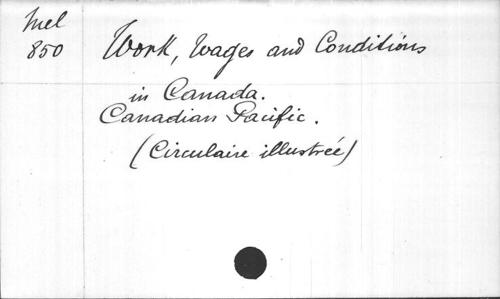 Mel
850
Work, Wages and Conditions
in Canada.
Canadian Pacific.
(Circulaire illustrée)